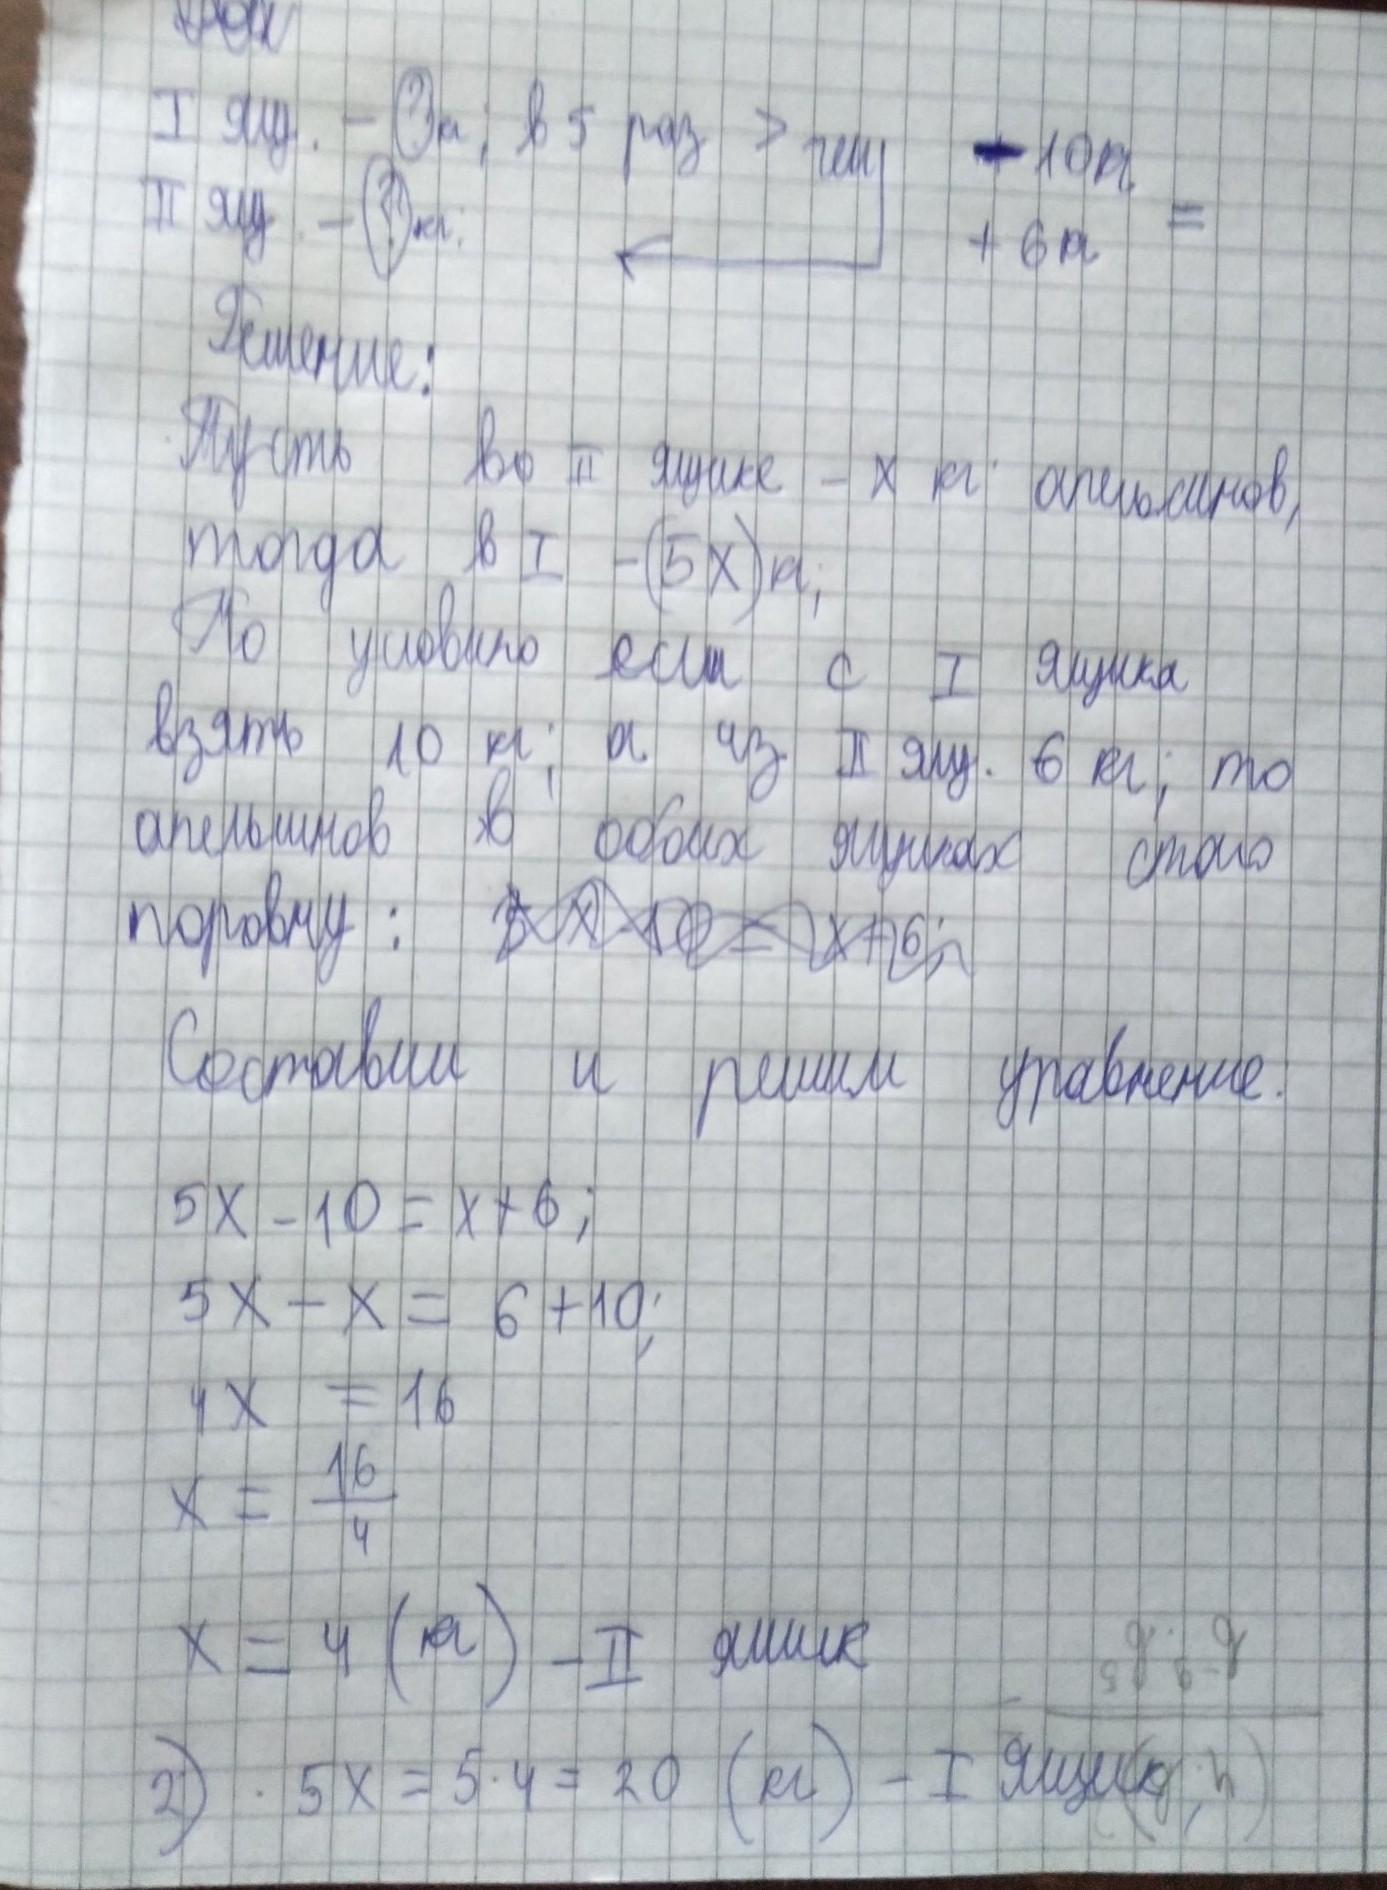 I ящ. - ? кг, в 5 раз > чем - 10 кг
II ящ. - ? кг. + 6 кг =
Решение:
Пусть во II ящике - x кг апельсинов,
тогда в I - (5x) кг,
По условию если с I ящика
взять 10 кг, а из II ящ. 6 кг, то
апельсинов в обоих ящиках стало
поровну:
Составим и решим уравнение.
5x - 10 = x + 6;
5x - x = 6 + 10;
4x = 16
x = 16/4
x = 4 (кг) - II ящик
2) . 5x = 5 · 4 = 20 (кг) - I ящик